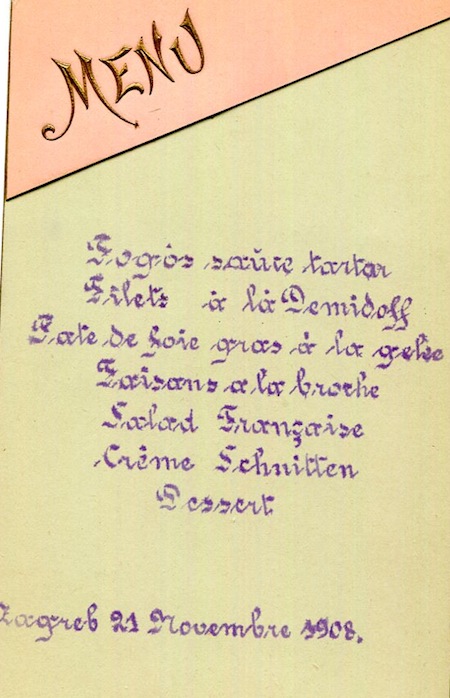 MENU
Fogós sauce tartar
Filets à là Demidoff
Pate de foie gras à la gelée
Faisans a la broche
Salad Française
Crême Schnitten
Dessert
Zagreb 21 Novembre 1908.